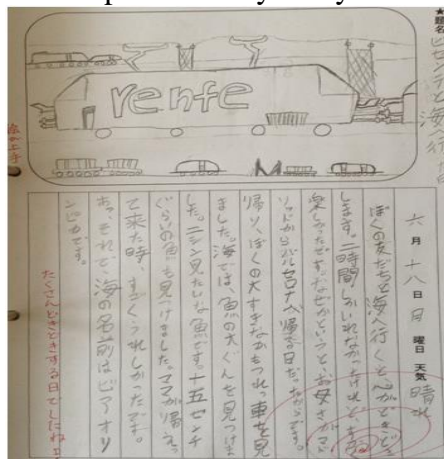 ★題名
と海に行く日
renfe
M
絵が上手
六月十八日月曜日 天気 晴れ
ぼくの友だちと海へ行くと
します。二時間しかいれなかったけれど、
楽しかったです。なぜかというと、お母さんがマド
リッドからバルセロナへ帰る日だったからです。
帰り、ぼくの大すきなかもつれっ車を見
ました。海では、魚の大ぐんを見つけま
した。ニシン見たいな魚です。十五センチ
ぐらいの魚も見つけました。ママが帰えっ
て来た時、すごくうれしかったです。
あっ、それで、海の名前はビアオリ
ンピカです。
たくさんどきどきする日でしたね